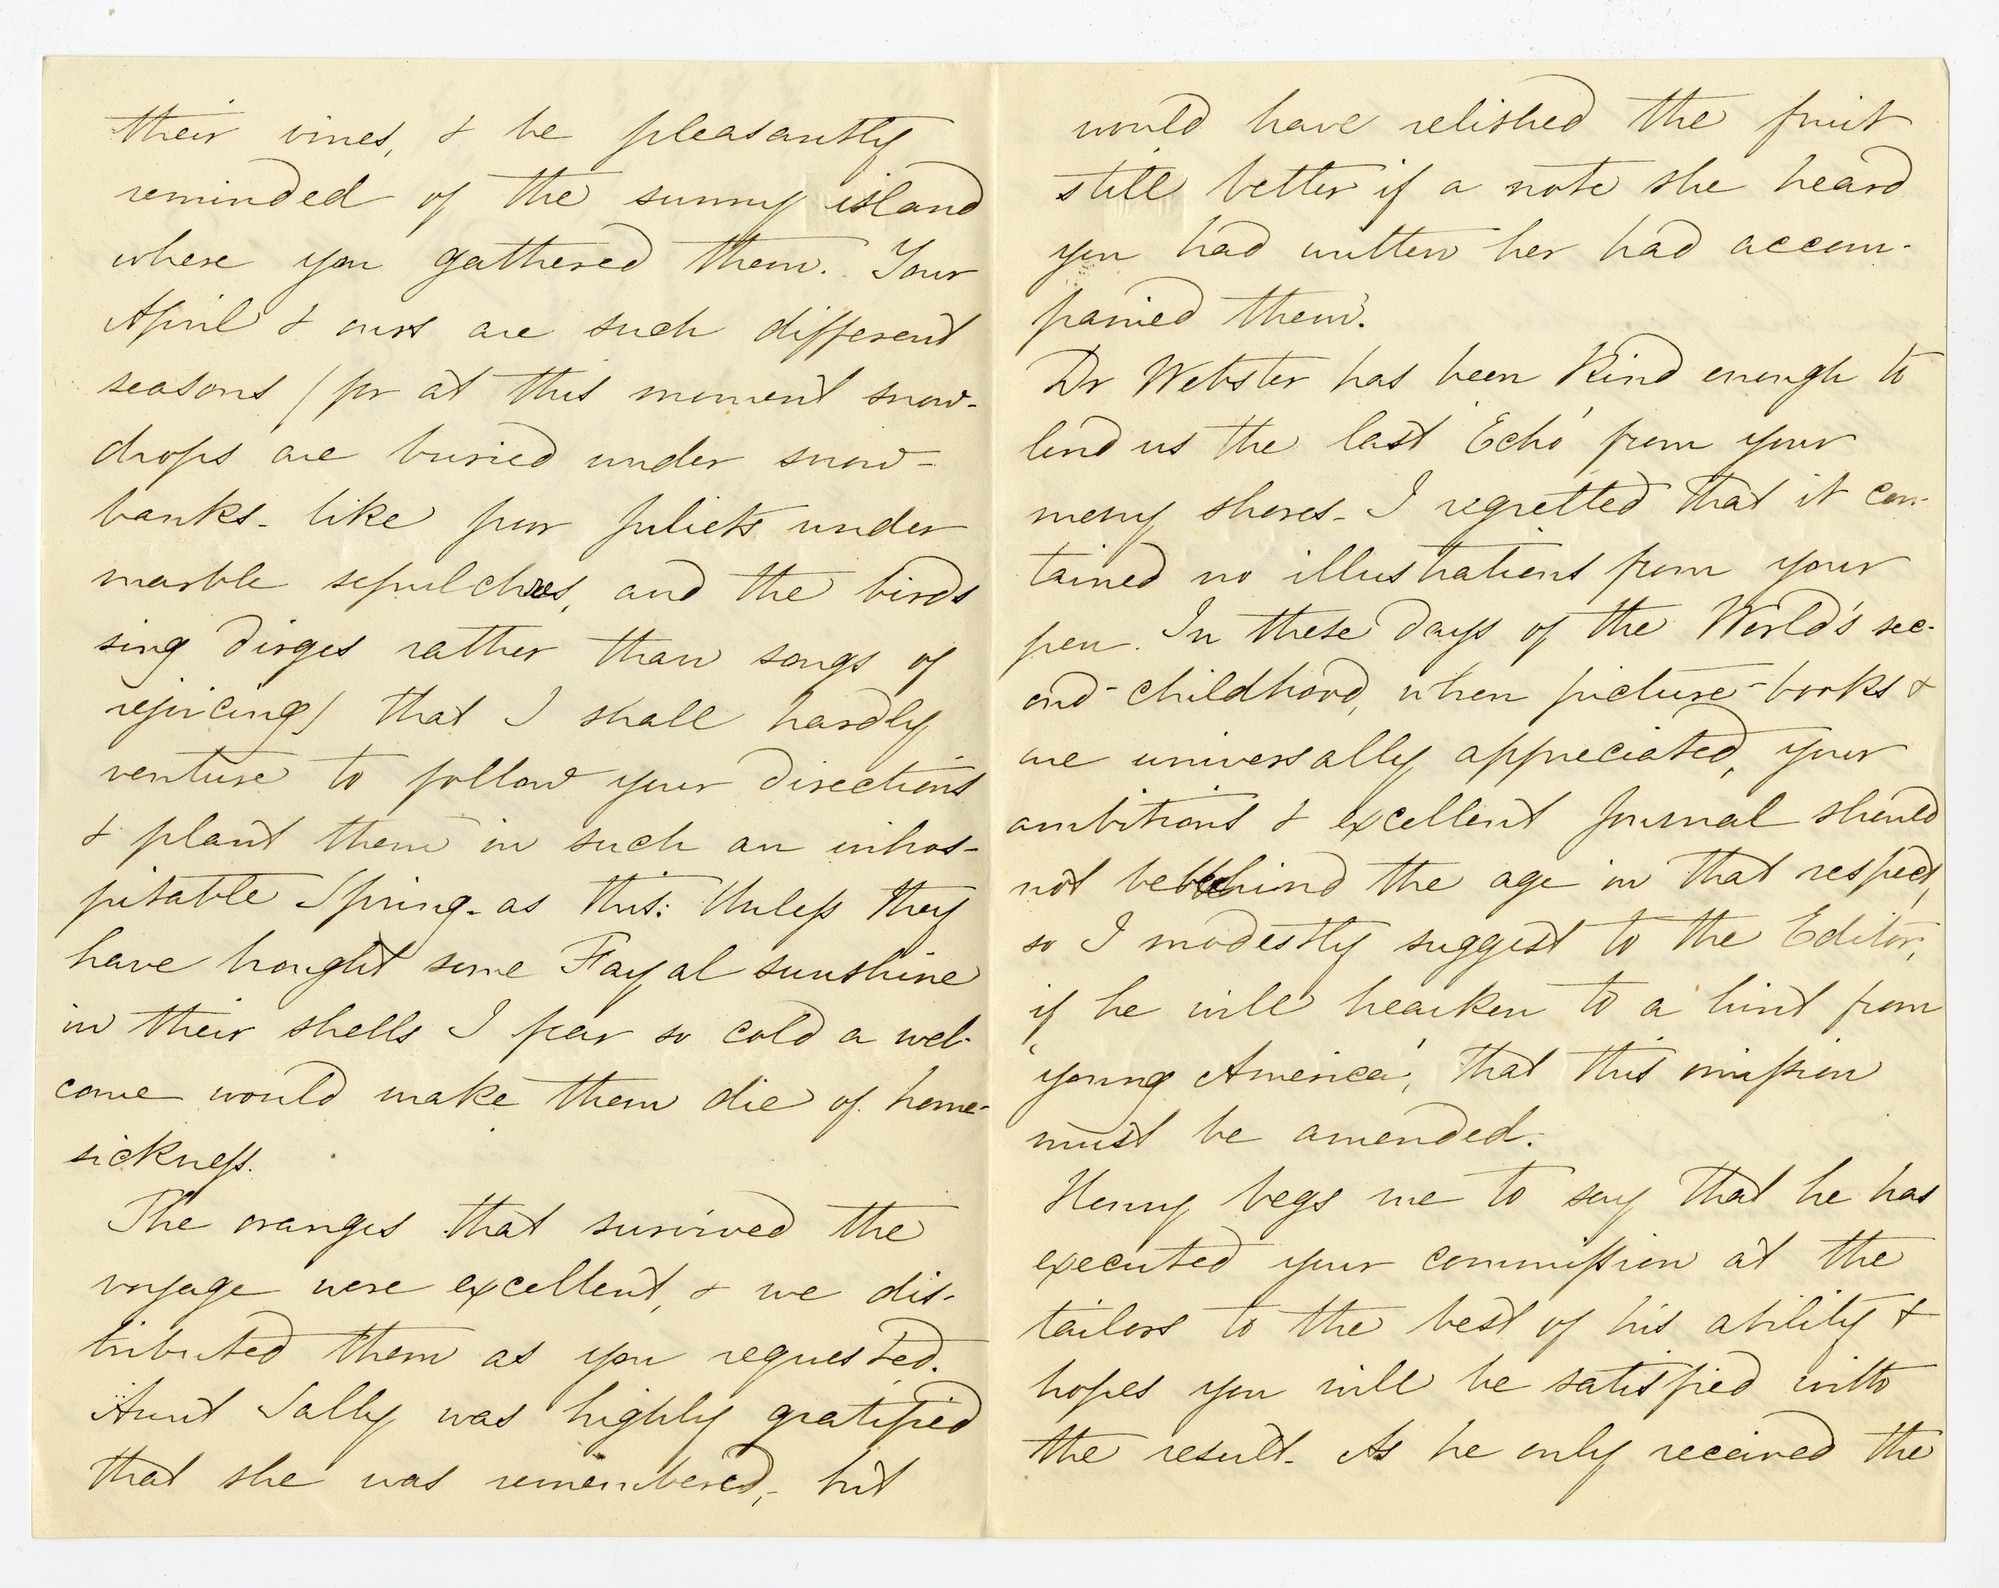 their vines, & be pleasantly
reminded of the sunny island
where you gathered them. Your
April & ours are such different
seasons (for at this moment snow-
drops are buried under snow-
banks - like poor Juliets under
marble sepulchres, and the birds
sing dirges rather than songs of
rejoicing) that I shall hardly
venture to follow your directions
& plant them in such an inhos-
pitable Spring - as this: Unless they
have brought some Fayal sunshine
in their shells I fear so cold a wel-
come would make them die of home-
sickness.
The oranges that survived the
voyage were excellent, & we dis-
tributed them as you requested.
Aunt Sally was highly gratified
that she was remembered, - but
would have relished the fruit
still better if a note she heard
you had written her had accom-
panied them.
Dr Webster has been kind enough to
lend us the last 'Echo' from your
merry shores - I regretted that it con-
tained no illustrations from your
pen. In these days of the World's sec-
ond-childhood, when picture-books &
are universally appreciated, your
ambitious & excellent Journal should
not behind the age in that respect,
so I modestly suggest to the Editor,
if he will hearken to a hint from
'young America', that this omission
must be amended.
Henry begs me to say that he has
executed your commission at the
tailors to the best of his ability &
hopes you will be satisfied with
the result - As he only received the